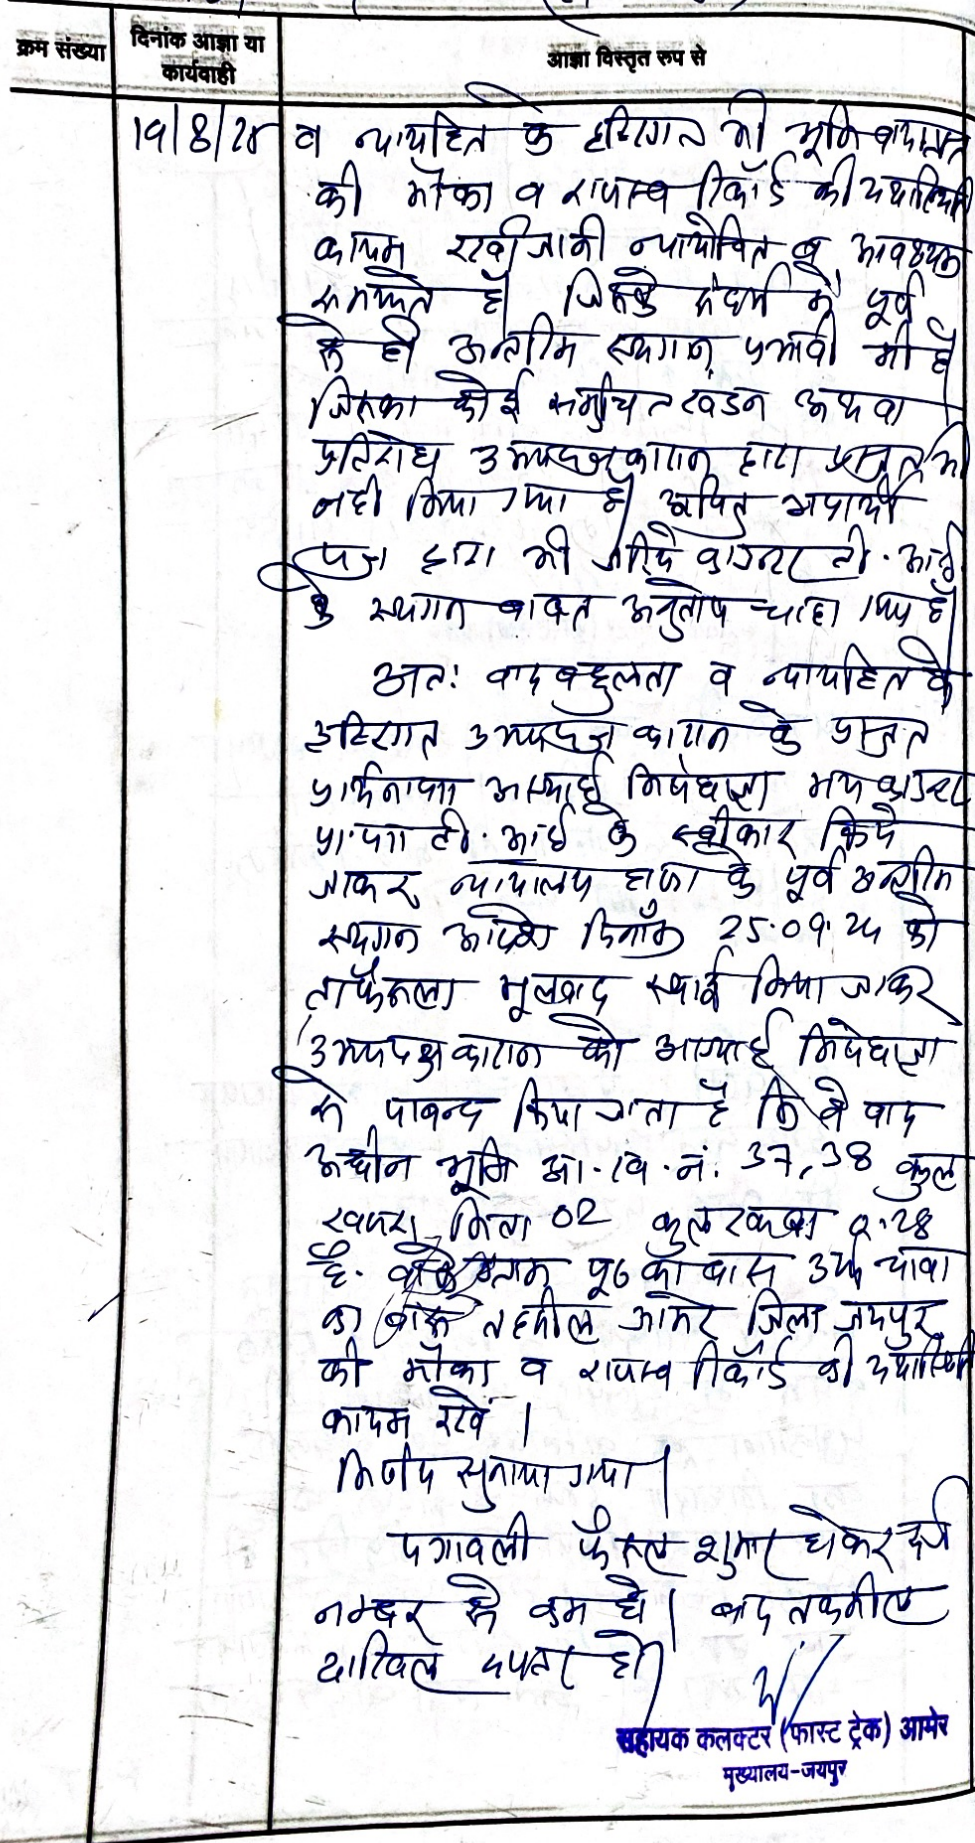 क्रम संख्या
दिनांक आज्ञा या कार्यवाही
आज्ञा विस्तृत रूप से
19/8/25
व न्यायहित के दृष्टिगत भी भूमि वादग्रस्त
की मौका व राजस्व रिकॉर्ड की यथास्थिति
कायम रखी जानी न्यायोचित व आवश्यक
समझते है। जिसके संदर्भ में पूर्व
से ही अन्तरिम स्थगन प्रभावी भी है
जिसका कोई समुचित खंडन अथवा
प्रतिरोध उभयपक्षकारान द्वारा प्रस्तुत भी
नही किया गया है अपितु अप्रार्थी
पक्ष द्वारा भी जरिये काउन्टर टी.आई
के स्थगन बाबत अनुतोष चाहा गया है।
अतः वादबहुलता व न्यायहित के
दृष्टिगत उभयपक्षकारान के प्रस्तुत
प्रार्थनापत्र अस्थाई निषेधाज्ञा मय काउन्टर
प्रा.पत्र टी.आई के स्वीकार किये
जाकर न्यायालय हाजा के पूर्व अन्तरिम
स्थगन आदेश दिनाँक 25.09.24 को
ताफैसला मूलवाद स्थाई किया जाकर
उभयपक्षकारान को अस्थाई निषेधाज्ञा
से पाबन्द किया जाता है कि वे वाद
अधीन भूमि आ.ख.नं. 37,38 कुल
खसरा किता 02 कुल रकबा 0.28
है. का बास उर्फ चावा
का बास तहसील आमेर जिला जयपुर
की मौका व राजस्व रिकॉर्ड की यथास्थिति
कायम रखें।
निर्णय सुनाया गया।
पत्रावली फैसल शुमार होकर दर्ज
नम्बर से कम हो। बाद तकमील
दाखिल दफ्तर हो।
सहायक कलक्टर (फास्ट ट्रेक) आमेर
मुख्यालय-जयपुर